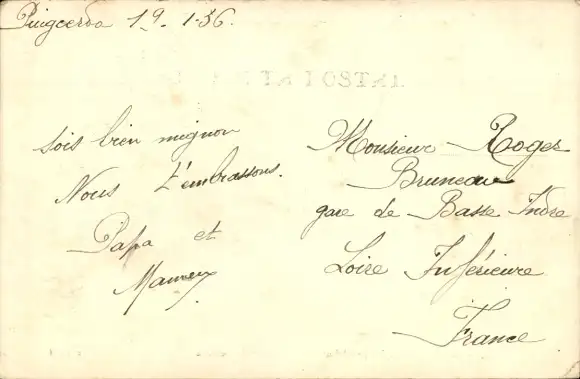 Puigcerda 19. 1-36.
sois bien mignon
Nous t'embrassons.
Papa et
Maman
Monsieur Roger
Bruneau
gare de Basse Indre
Loire Inférieure
France